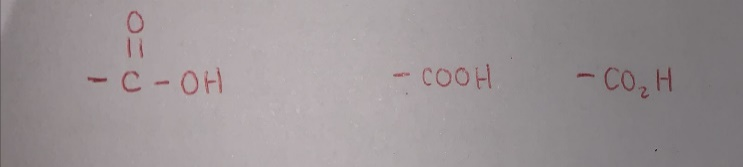 O
||
- C - OH - COOH - CO₂H